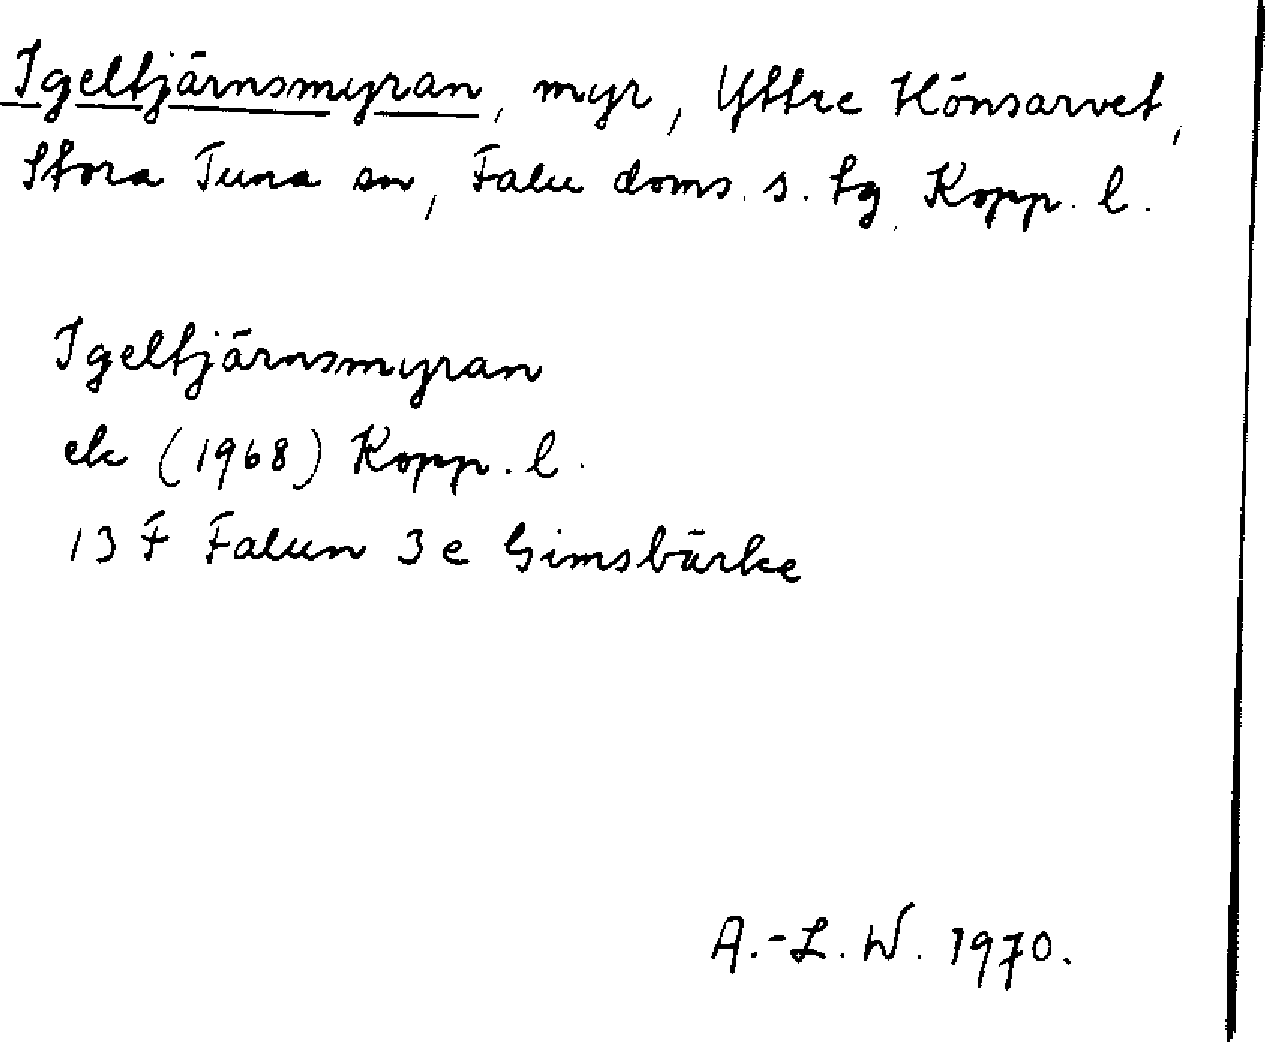 Igeltjärnsmyran, myr, Yttre Hönsarvet,
Stora Tuna sn, Falu doms. s. tg. Kopp. l.
Igeltjärnsmyran
ek (1968) Kopp. l.
13 F Falun 3 e Gimsbärke
A.-L. W. 1970.